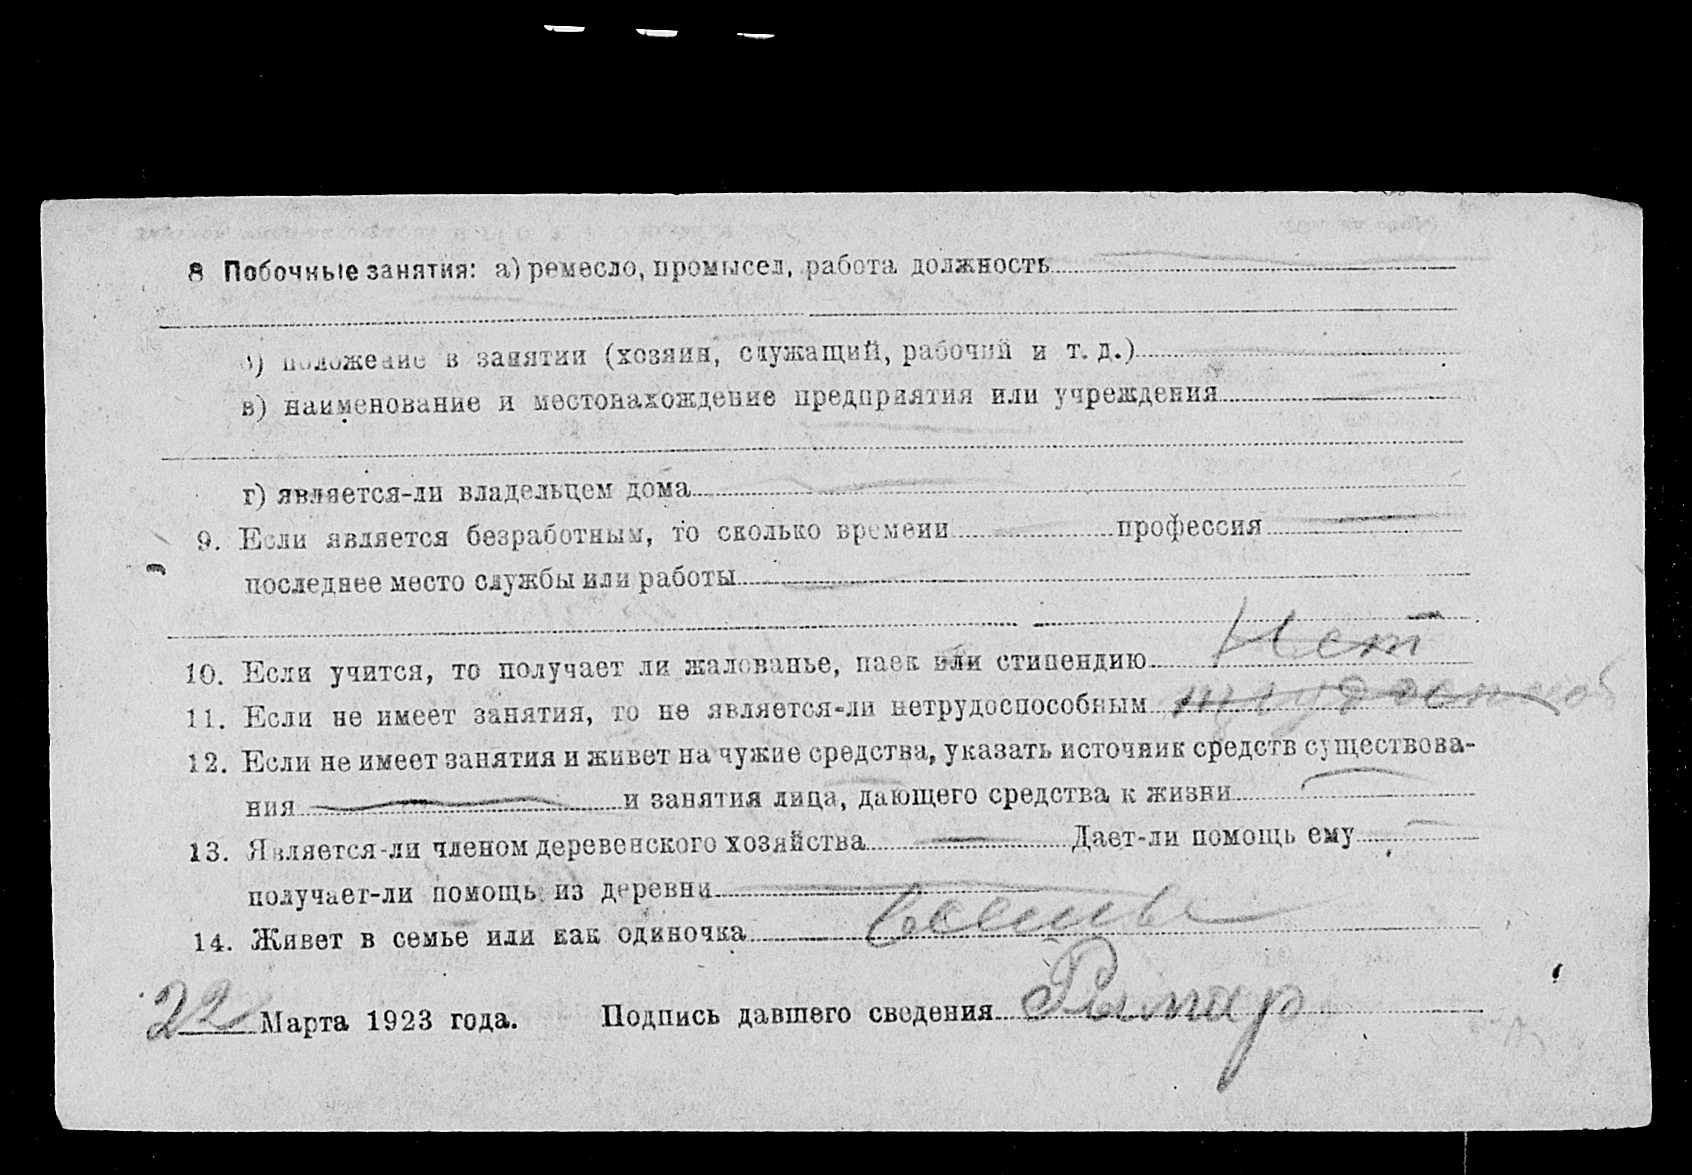 8 Побочные занятия: а) ремесло, промысел, работа должность
б) положение в занятии (хозяин, служащий, рабочий и т. д.)
в) наименование и местонахождение предприятия или учреждения
г) является-ли владельцем дома
9. Если является безработным, то сколько времени профессия
последнее место службы или работы
10. Если учится, то получает ли жалованье, паек или стипендию Нет
11. Если не имеет занятия, то не является-ли нетрудоспособным
12. Если не имеет занятия и живет на чужие средства, указать источник средств существова-
ния и занятия лица, дающего средства к жизни
13. Является-ли членом деревенского хозяйства Дает-ли помощь ему
получает-ли помощь из деревни
14. Живет в семье или как одиночка в семье
22 Марта 1923 года. Подпись давшего сведения Рымар